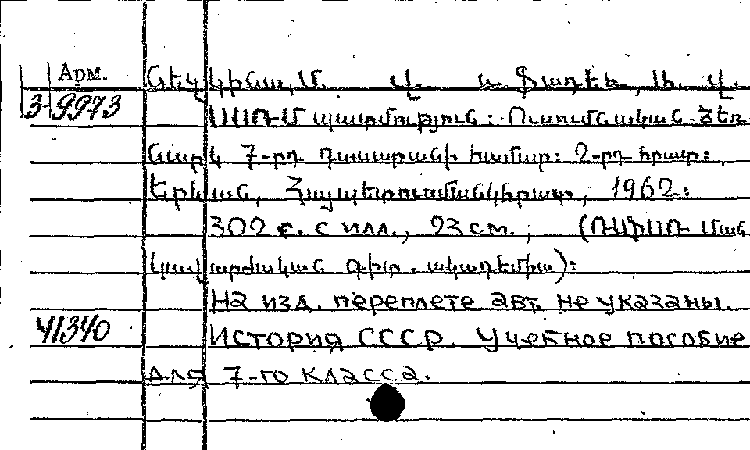 Арм. Նեչկինա, Մ. Վ. և Ֆադեև, Ա. Վ.
3-9973 ՍՍՌՄ պատմություն: Ուսումնական ձեռ
նարկ 7-րդ դասարանի համար: 2-րդ հրատ:
Երևան, Հայպետուսմանկհրատ, 1962:
302 с. с илл., 23 см., (ՌՍՖՍՌ Ման
կավարժական գիտ. ակադեմիա):
На изд. переплете авт. не указаны.
41340 История СССР. Учебное пособие
для 7-го класса.